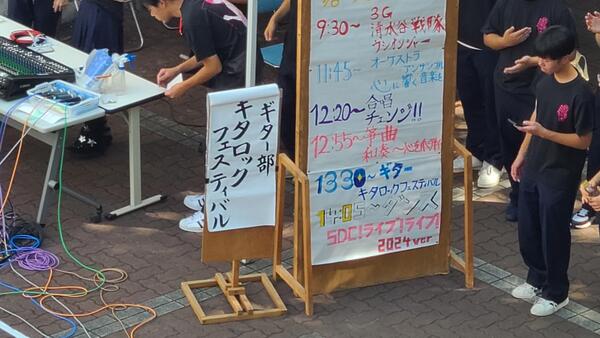 ギター部
キタロック
フェスティバル
9:30~ 3G
清水谷戦隊
ウシインジャー
11:45~ オーケストラ
アンサンブル
心に響く音楽を
12:20~ 合唱
チェンジ!!
12:55~ 箏曲
和奏~
13:30~ ギター
キタロックフェスティバル
ダンス
SDC!ライブ!ライブ!
2024ver